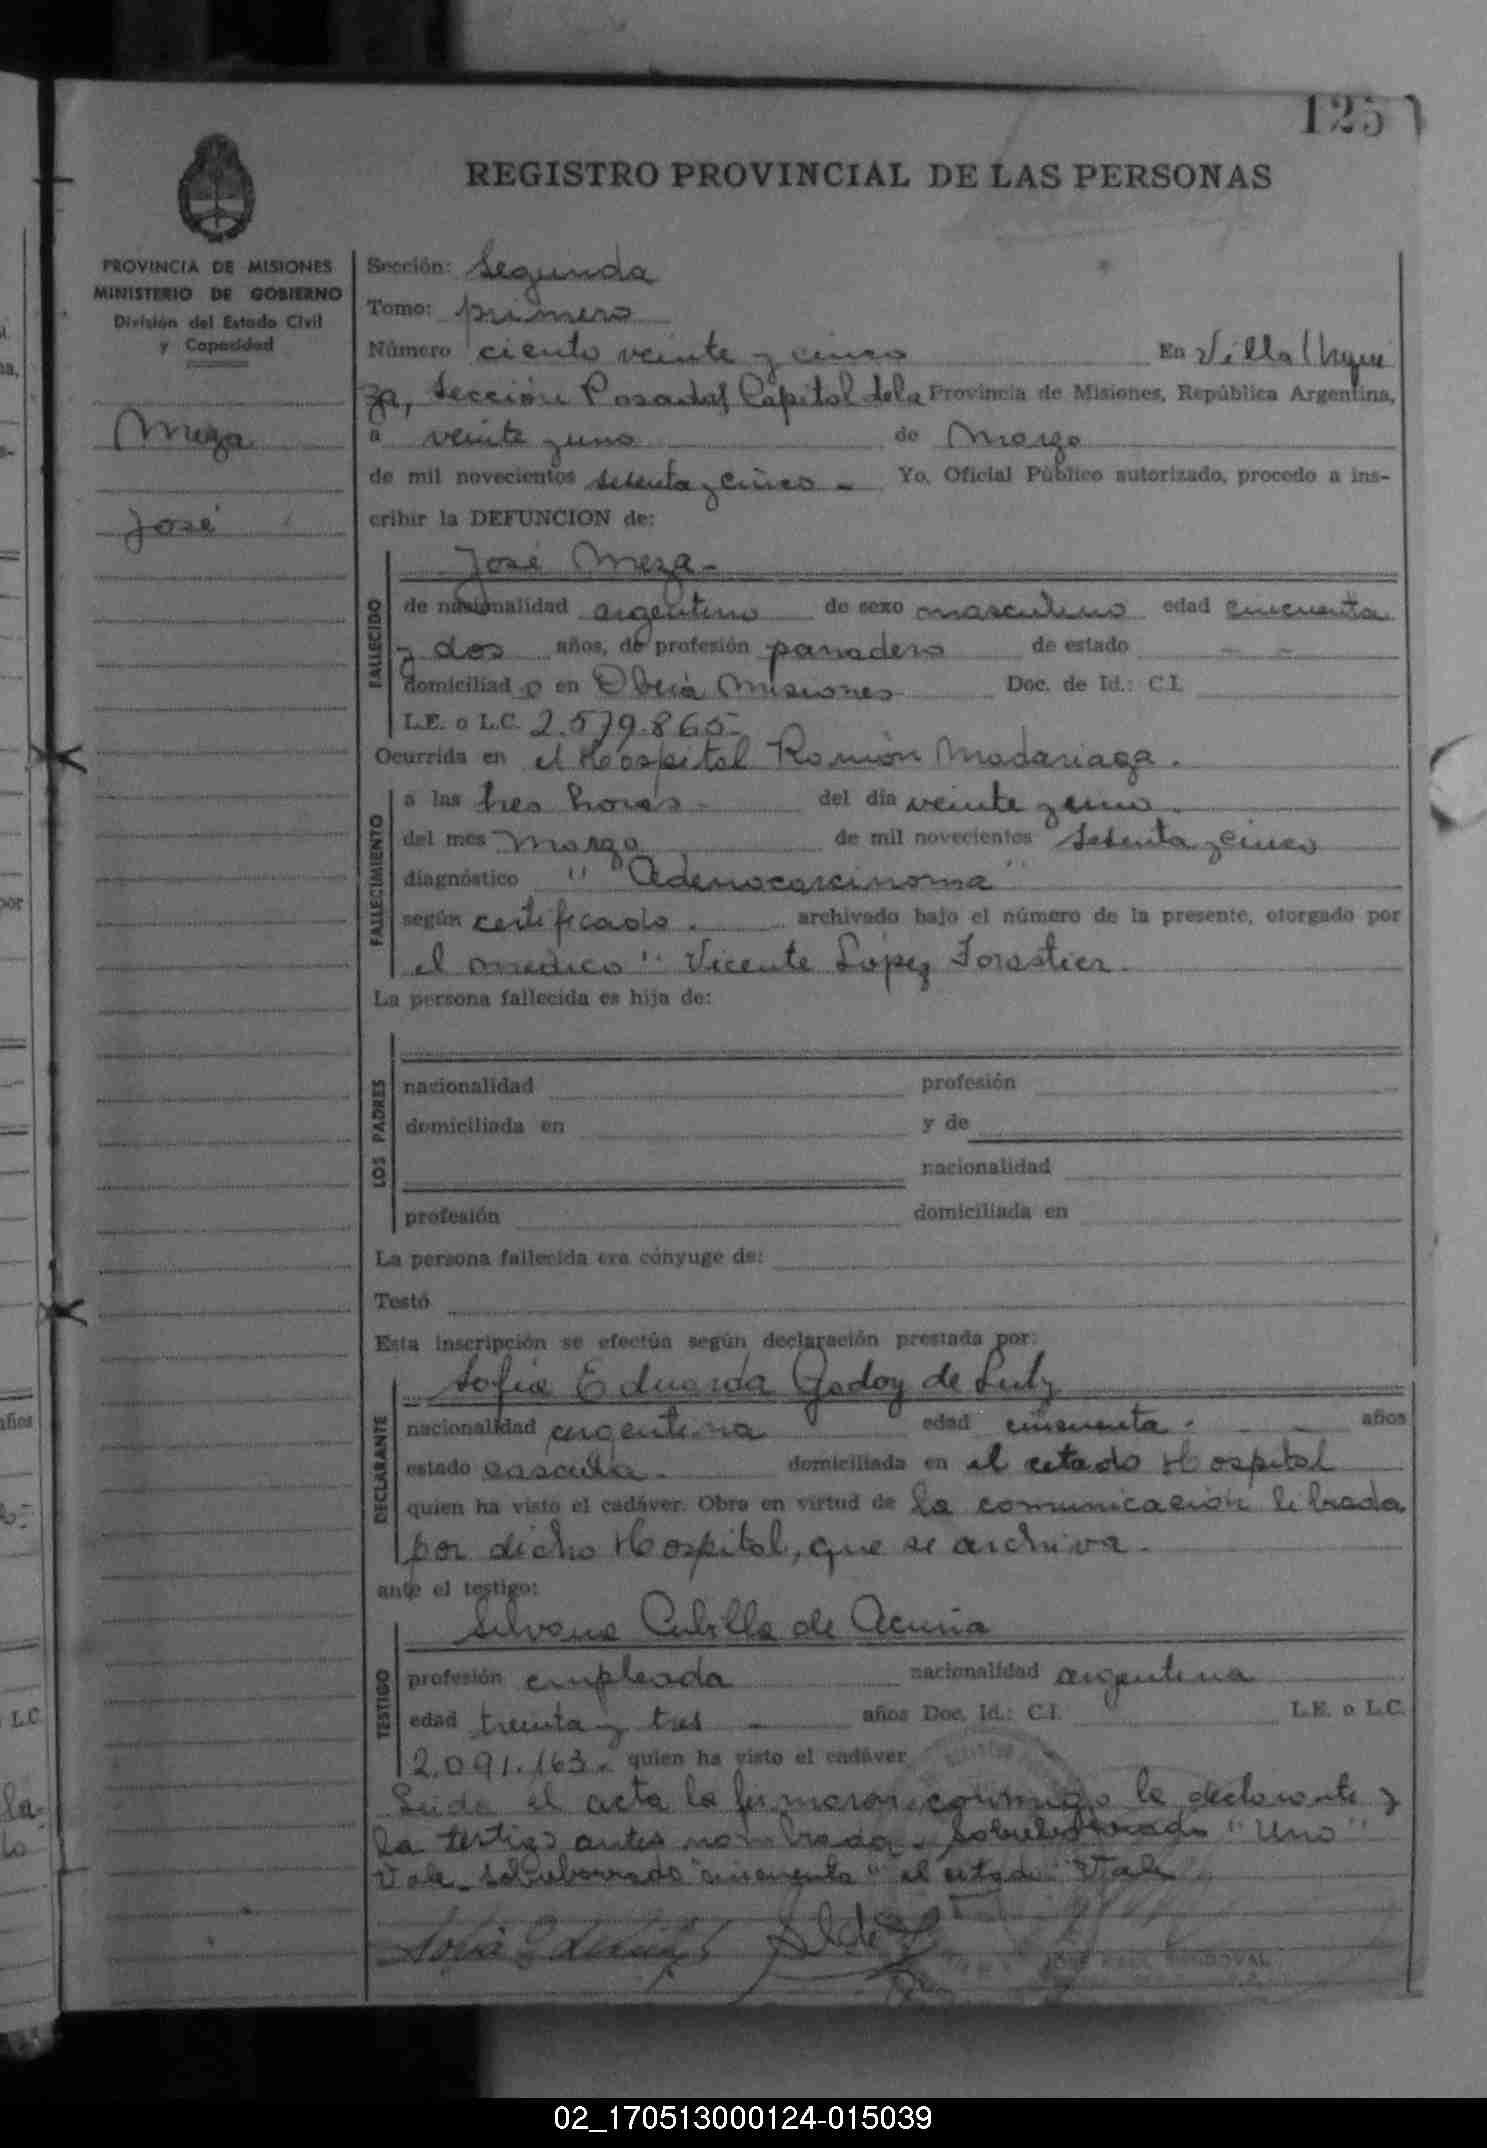 125
REGISTRO PROVINCIAL DE LAS PERSONAS
PROVINCIA DE MISIONES
MINISTERIO DE GOBIERNO
División del Estado Civil
y Capacidad
Meza
José
Sección: Segunda
Tomo: primero
Número ciento veinte y cinco En Villa Urqui
za, Sección Posadas Capital de la Provincia de Misiones, República Argentina,
a veinte y uno de Marzo
de mil novecientos setenta y cinco - Yo, Oficial Público autorizado, procedo a ins-
cribir la DEFUNCION de:
José Meza -
FALLECIDO
de nacionalidad argentino de sexo masculino edad cincuenta
y dos años, de profesión panadero de estado - -
domiciliad o en Oberá Misiones Doc. de Id.: C.I.
L.E. o L.C. 2.579.865-
Ocurrida en el Hospital Ramón Madariaga.
FALLECIMIENTO
a las tres horas - del día veinte y uno.
del mes Marzo de mil novecientos setenta y cinco
diagnóstico " Adenocarcinoma "
según certificado. archivado bajo el número de la presente, otorgado por
el medico " Vicente López Forastier.
La persona fallecida es hija de:
LOS PADRES
nacionalidad profesión
domiciliada en y de
nacionalidad
profesión domiciliada en
La persona fallecida era cónyuge de:
Testó
Esta inscripción se efectúa según declaración prestada por:
Sofia Eduarda Godoy de
DECLARANTE
nacionalidad argentina edad cincuenta - - años
estado casada. domiciliada en el citado Hospital
quien ha visto el cadáver. Obra en virtud de la comunicación librada
por dicho Hospital, que se archiva.
ante el testigo:
Silvana Cubilla de Acuña
TESTIGO
profesión empleada nacionalidad argentina
edad treinta y tres - años Doc. Id.: C.I. L.E. o L.C.
2.091.163. quien ha visto el cadáver
Leida el acta la firmaron conmigo la declarante y
la testigo antes nombrada. Sobreborrado "Uno"
Vale. Sobreborrado "cincuenta" el citado. Vale
JOSE RAUL SANDOVAL
02_170513000124-015039